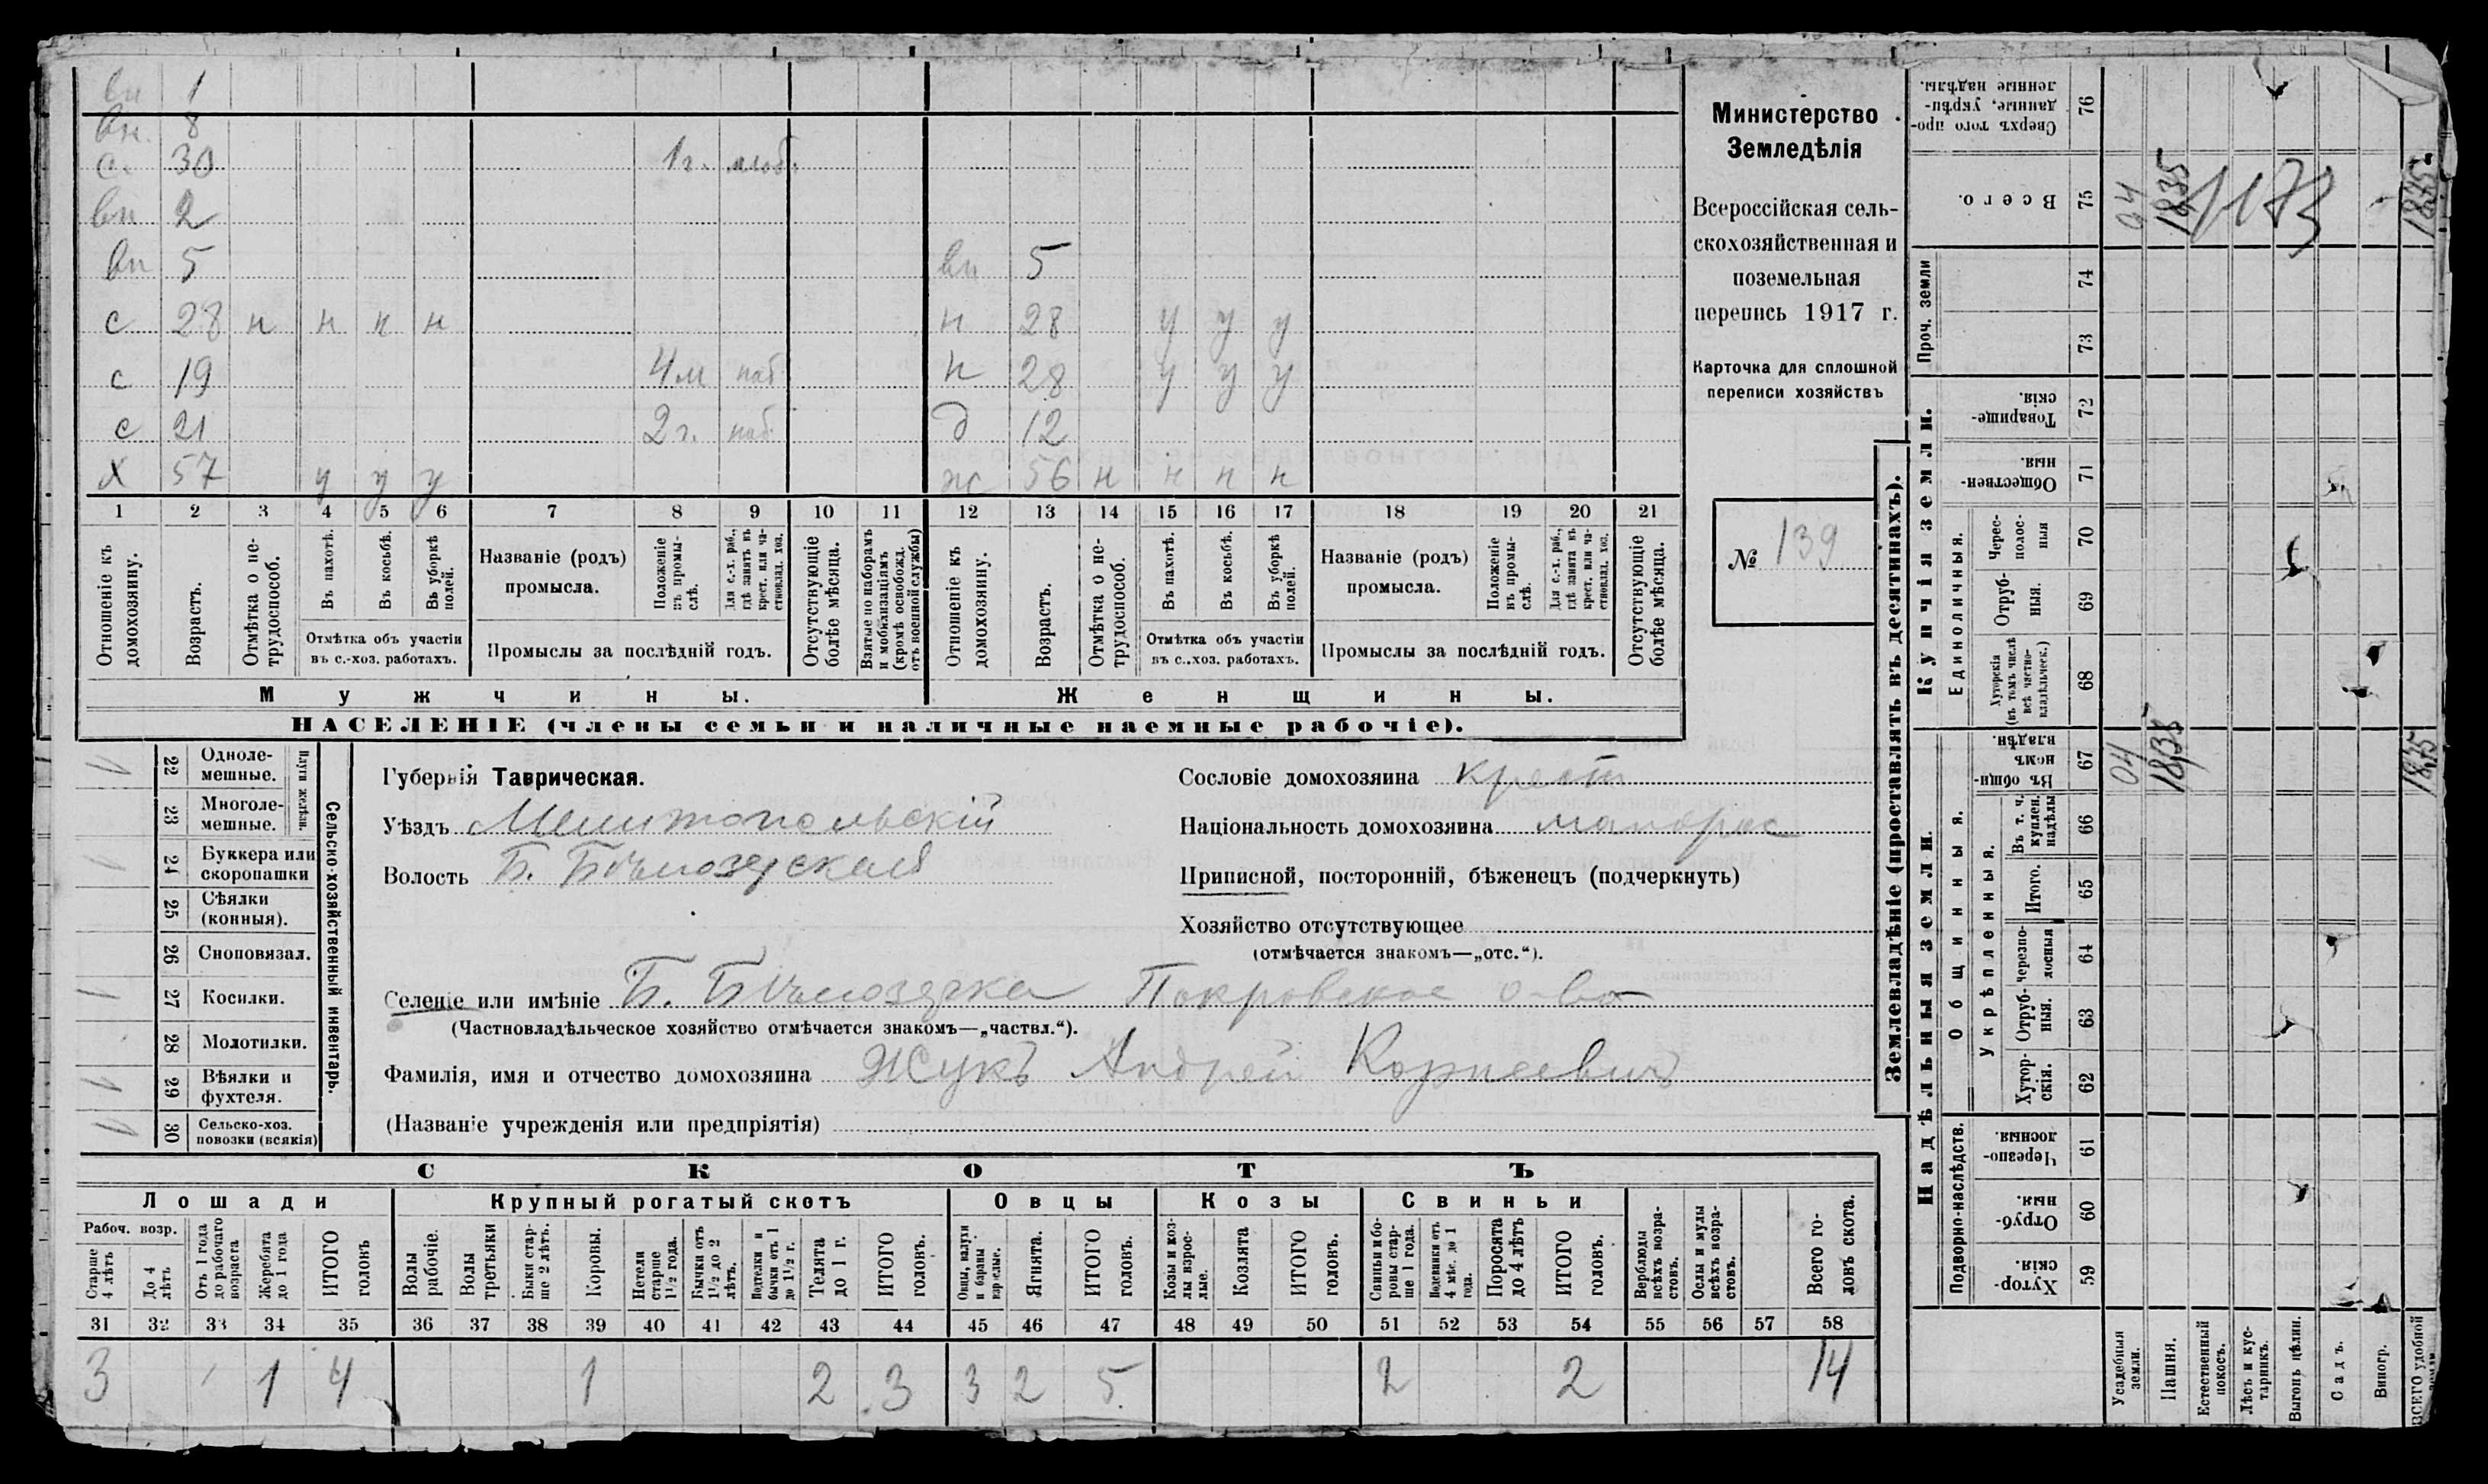 вн 1
вн. 8
с. 30 1 г. моб.
вн 2
вн 5 вн 5
с 28 н н н н н 28 у у у
с 19 4 м наб н 28 у у у
с 21 2 г. наб. д 12
х 57 у у у ж 56 н н н н
1 2 3 4 5 6 7 8 9 10 11 12 13 14 15 16 17 18 19 20 21
Отношеніе къ домохозяину.
Возрастъ.
Отмѣтка о не-трудоспособ.
Въ пахотѣ.
Въ косьбѣ.
Въ уборкѣ полей.
Отмѣтка объ участіи въ с.-хоз. работахъ.
Названіе (родъ) промысла.
Положеніе въ промы-слѣ.
Для с.-х. раб., гдѣ занятъ въ крест. или ча-стновлад. хоз.
Промыслы за послѣдній годъ.
Отсутствующіе болѣе мѣсяца.
Взятые по наборамъ и мобилизаціямъ (кромѣ освобожд. отъ военной службы)
Отношеніе къ домохозяину.
Возрастъ.
Отмѣтка о не-трудоспособ.
Въ пахотѣ.
Въ косьбѣ.
Въ уборкѣ полей.
Отмѣтка объ участіи въ с..хоз. работахъ.
Названіе (родъ) промысла.
Положеніе въ промы-слѣ.
Для с.-х. раб., гдѣ занята въ крест. или ча-стновлад. хоз.
Промыслы за послѣдній годъ.
Отсутствующіе болѣе мѣсяца.
Мужчины. Женщины.
НАСЕЛЕНІЕ (члены семьи и наличные наемные рабочіе).
Министерство
Земледѣлія
Всероссійская сель-
скохозяйственная и
поземельная
перепись 1917 г.
Карточка для сплошной
переписи хозяйствъ
№ 139
22 Одноле-мешные.
23 Многоле-мешные.
Плуги желѣзн.
24 Буккера или скоропашки
25 Сѣялки (конныя).
26 Сноповязал.
27 Косилки.
28 Молотилки.
29 Вѣялки и фухтеля.
30 Сельско-хоз. повозки (всякія)
Сельско-хозяйственный инвентарь.
Губернія Таврическая.
Уѣздъ Мелитопольскій
Волость Б. Бѣлозерская
Сословіе домохозяина крест
Національность домохозяина малорос
Приписной, посторонній, бѣженецъ (подчеркнуть)
Хозяйство отсутствующее
(отмѣчается знакомъ—„отс.“).
Селеніе или имѣніе Б. Бѣлозерка Покровское о-во
(Частновладѣльческое хозяйство отмѣчается знакомъ—„частвл.“).
Фамилія, имя и отчество домохозяина Жукъ Андрей Корнеевичъ
(Названіе учрежденія или предпріятія)
СКОТЪ
Лошади Крупный рогатый скотъ Овцы Козы Свиньи
Рабоч. возр.
Старше 4 лѣтъ
До 4 лѣтъ
Отъ 1 года до рабочаго возраста
Жеребята до 1 года
ИТОГО головъ
Волы рабочіе.
Волы третьяки
Быки стар-ше 2 лѣтъ.
Коровы.
Нетели старше 1½ года.
Бычки отъ 1½ до 2 лѣтъ.
Подтелки и бычки отъ 1 до 1½ г.
Телята до 1 г.
ИТОГО головъ.
Овцы, валухи и бараны взрослые.
Ягнята.
ИТОГО головъ.
Козы и коз-лы взрос-лые.
Козлята
ИТОГО головъ.
Свиньи и бо-ровы стар-ше 1 года.
Подсвинки отъ 4 мѣс. до 1 года.
Поросята до 4 лѣтъ
ИТОГО головъ.
Верблюды всѣхъ возра-стовъ.
Ослы и мулы всѣхъ возра-стовъ.
Всего го-ловъ скота.
31 32 33 34 35 36 37 38 39 40 41 42 43 44 45 46 47 48 49 50 51 52 53 54 55 56 57 58
3 1 4 1 2 3 3 2 5 2 2 14
Землевладѣніе (проставлять въ десятинахъ).
Сверхъ того про-данные, укрѣп-ленные надѣлы. 76
Всего. 75 04 1835 1173 1835
Проч. земли 74 73
Купчія земли.
Товарище-скія. 72
Обществен-ныя. 71
Единоличныя.
Черес-полос-ныя 70
Отруб-ныя. 69
Хуторскія (въ томъ числѣ всѣ частно-владѣльческ.) 68
Надѣльныя земли.
Общинныя.
Въ общи-номъ владѣн. 67 04 1835 1835
Укрѣпленныя.
Въ т. ч. куплен. надѣлы 66
Итого. 65
Черезпо-лосныя 64
Отруб-ныя. 63
Хутор-скія. 62
Подворно-наслѣдств.
Черезпо-лосныя. 61
Отруб-ныя. 60
Хутор-скія. 59
Усадебныя земли.
Пашня.
Естественный покосъ.
Лѣсъ и кус-тарникъ.
Выгонъ цѣлин.
Садъ.
Виногр.
ВСЕГО удобной